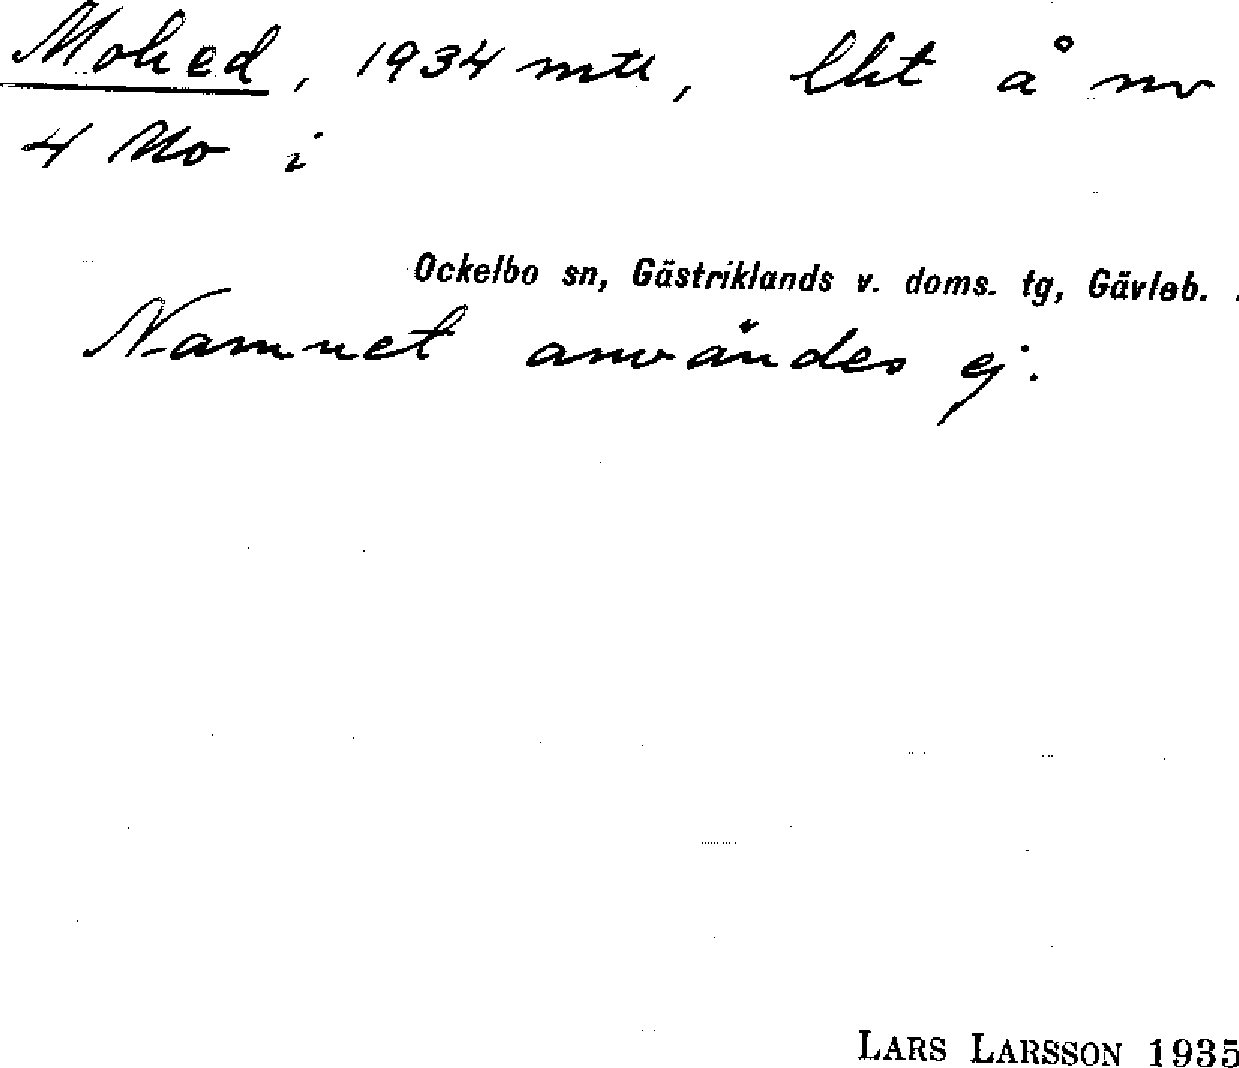 Mohed, 1934 mtl, lht å nr
4 Mo i
Ockelbo sn, Gästriklands v. doms. tg, Gävleb.
Namnet användes ej.
LARS LARSSON 1935